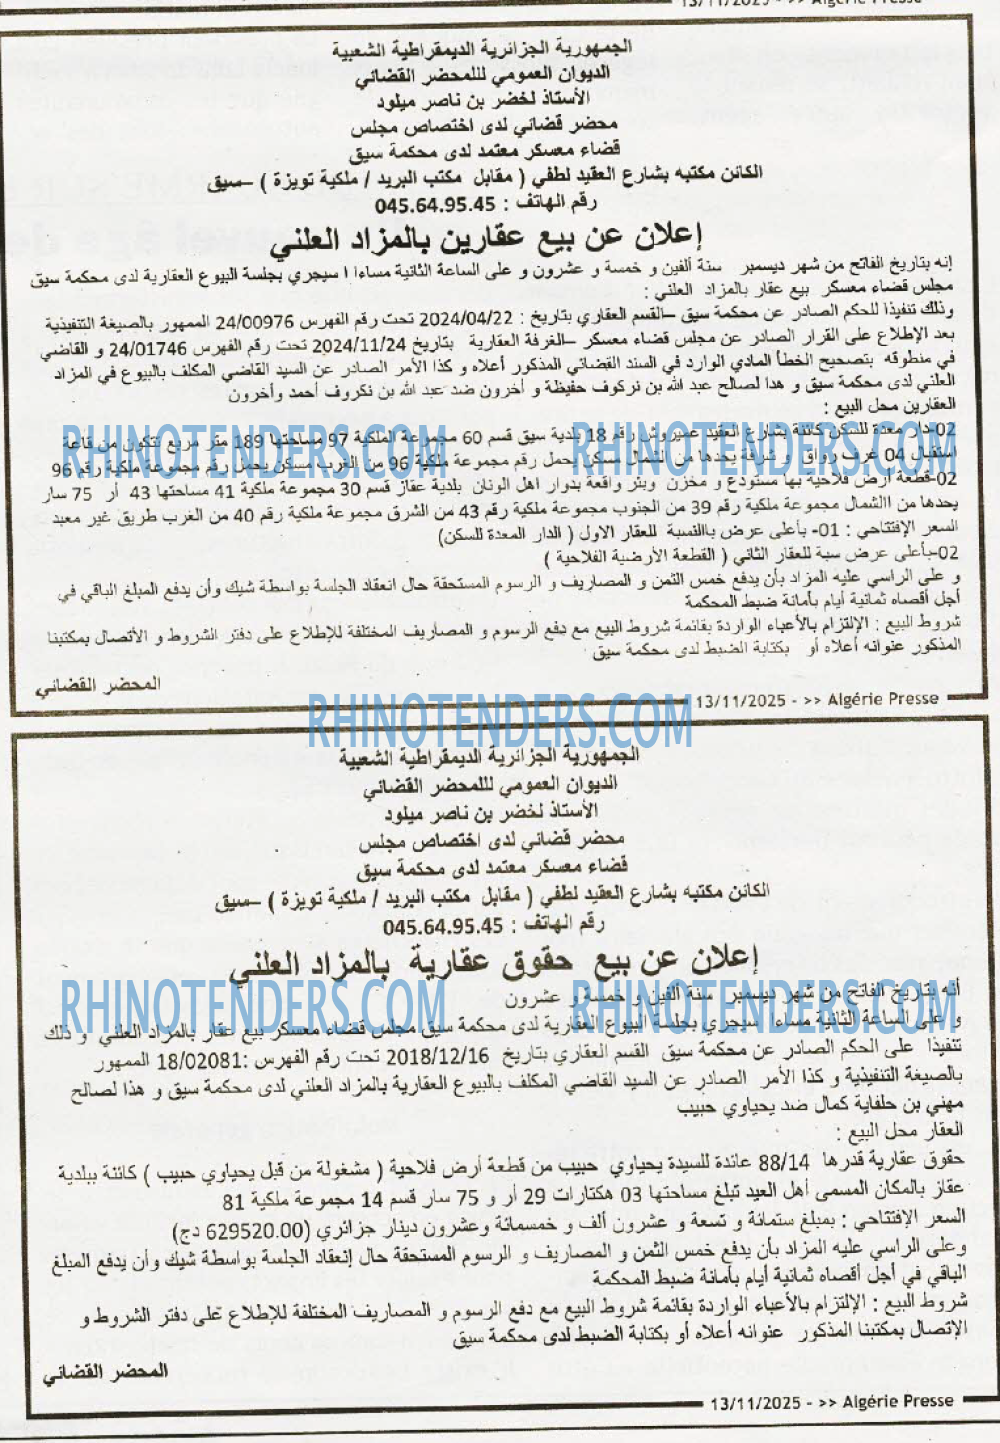 13/11/2025 - >> Algérie Presse
الجمهورية الجزائرية الديمقراطية الشعبية
الديوان العمومي لللمحضر القضائي
الأستاذ لخضر بن ناصر ميلود
محضر قضائي لدى اختصاص مجلس
قضاء معسكر معتمد لدى محكمة سيق
الكائن مكتبه بشارع العقيد لطفي ( مقابل مكتب البريد / ملكية تويزة ) –سيق
رقم الهاتف : 045.64.95.45
إعلان عن بيع عقارين بالمزاد العلني
إنه بتاريخ الفاتح من شهر ديسمبر سنة ألفين و خمسة و عشرون و على الساعة الثانية مساءا ا سيجري بجلسة البيوع العقارية لدى محكمة سيق
مجلس قضاء معسكر بيع عقار بالمزاد العلني :
وذلك تنفيذا للحكم الصادر عن محكمة سيق –القسم العقاري بتاريخ : 2024/04/22 تحت رقم الفهرس 24/00976 الممهور بالصيغة التنفيذية
بعد الإطلاع على القرار الصادر عن مجلس قضاء معسكر –الغرفة العقارية بتاريخ 2024/11/24 تحت رقم الفهرس 24/01746 و القاضي
في منطوقه بتصحيح الخطأ المادي الوارد في السند القضائي المذكور أعلاه و كذا الأمر الصادر عن السيد القاضي المكلف بالبيوع في المزاد
العلني لدى محكمة سيق و هدا لصالح عبد الله بن نركوف حفيظة و أخرون ضد عبد الله بن نكروف أحمد وأخرون
العقارين محل البيع :
02-دار معدة للسكن كائنة بشارع العقيد عميروش رقم 18 بلدية سيق قسم 60 مجموعة الملكية 97 مساحتها 189 متر مربع تتكون من قاعة
استقبال 04 غرف رواق و شرفة يحدها من الشمال مسكن يحمل رقم مجموعة ملكية 96 من الغرب مسكن يحمل رقم مجموعة ملكية رقم 96
02-قطعة أرض فلاحية بها مستودع و مخزن وبئر واقعة بدوار اهل الونان بلدية عقاز قسم 30 مجموعة ملكية 41 مساحتها 43 أر 75 سار
يحدها من االشمال مجموعة ملكية رقم 39 من الجنوب مجموعة ملكية رقم 43 من الشرق مجموعة ملكية رقم 40 من الغرب طريق غير معبد
السعر الإفتتاحي : 01- بأعلى عرض باالنسبة للعقار الاول ( الدار المعدة للسكن)
02-بأعلى عرض سبة للعقار الثاني ( القطعة الأرضية الفلاحية )
و على الراسي عليه المزاد بأن يدفع خمس الثمن و المصاريف و الرسوم المستحقة حال انعقاد الجلسة بواسطة شيك وأن يدفع المبلغ الباقي في
أجل أقصاه ثمانية أيام بأمانة ضبط المحكمة
شروط البيع : الإلتزام بالأعباء الواردة بقائمة شروط البيع مع دفع الرسوم و المصاريف المختلفة للإطلاع على دفتر الشروط و الأتصال بمكتبنا
المذكور عنوانه أعلاه أو بكتابة الضبط لدى محكمة سيق
المحضر القضائي
13/11/2025 - >> Algérie Presse
RHINOTENDERS.COM
RHINOTENDERS.COM
RHINOTENDERS.COM
الجمهورية الجزائرية الديمقراطية الشعبية
الديوان العمومي لللمحضر القضائي
الأستاذ لخضر بن ناصر ميلود
محضر قضائي لدى اختصاص مجلس
قضاء معسكر معتمد لدى محكمة سيق
الكائن مكتبه بشارع العقيد لطفي ( مقابل مكتب البريد / ملكية تويزة ) –سيق
رقم الهاتف : 045.64.95.45
إعلان عن بيع حقوق عقارية بالمزاد العلني
أنه بتاريخ الفاتح من شهر ديسمبر سنة ألفين و خمسة و عشرون
و على الساعة الثانية مساءا سيجري بجلسة البيوع العقارية لدى محكمة سيق مجلس قضاء معسكر بيع عقار بالمزاد العلني و ذلك
تنفيذا على الحكم الصادر عن محكمة سيق القسم العقاري بتاريخ 2018/12/16 تحت رقم الفهرس :18/02081 الممهور
بالصيغة التنفيذية و كذا الأمر الصادر عن السيد القاضي المكلف بالبيوع العقارية بالمزاد العلني لدى محكمة سيق و هذا لصالح
مهني بن حلفاية كمال ضد يحياوي حبيب
العقار محل البيع :
حقوق عقارية قدرها 88/14 عائدة للسيدة يحياوي حبيب من قطعة أرض فلاحية ( مشغولة من قبل يحياوي حبيب ) كائنة ببلدية
عقاز بالمكان المسمى أهل العيد تبلغ مساحتها 03 هكتارات 29 أر و 75 سار قسم 14 مجموعة ملكية 81
السعر الإفتتاحي : بمبلغ ستمائة و تسعة و عشرون ألف و خمسمائة وعشرون دينار جزائري (629520.00 دج)
وعلى الراسي عليه المزاد بأن يدفع خمس الثمن و المصاريف و الرسوم المستحقة حال إنعقاد الجلسة بواسطة شيك وأن يدفع المبلغ
الباقي في أجل أقصاه ثمانية أيام بأمانة ضبط المحكمة
شروط البيع : الإلتزام بالأعباء الواردة بقائمة شروط البيع مع دفع الرسوم و المصاريف المختلفة للإطلاع على دفتر الشروط و
الإتصال بمكتبنا المذكور عنوانه أعلاه أو بكتابة الضبط لدى محكمة سيق
المحضر القضائي
13/11/2025 - >> Algérie Presse
RHINOTENDERS.COM
RHINOTENDERS.COM